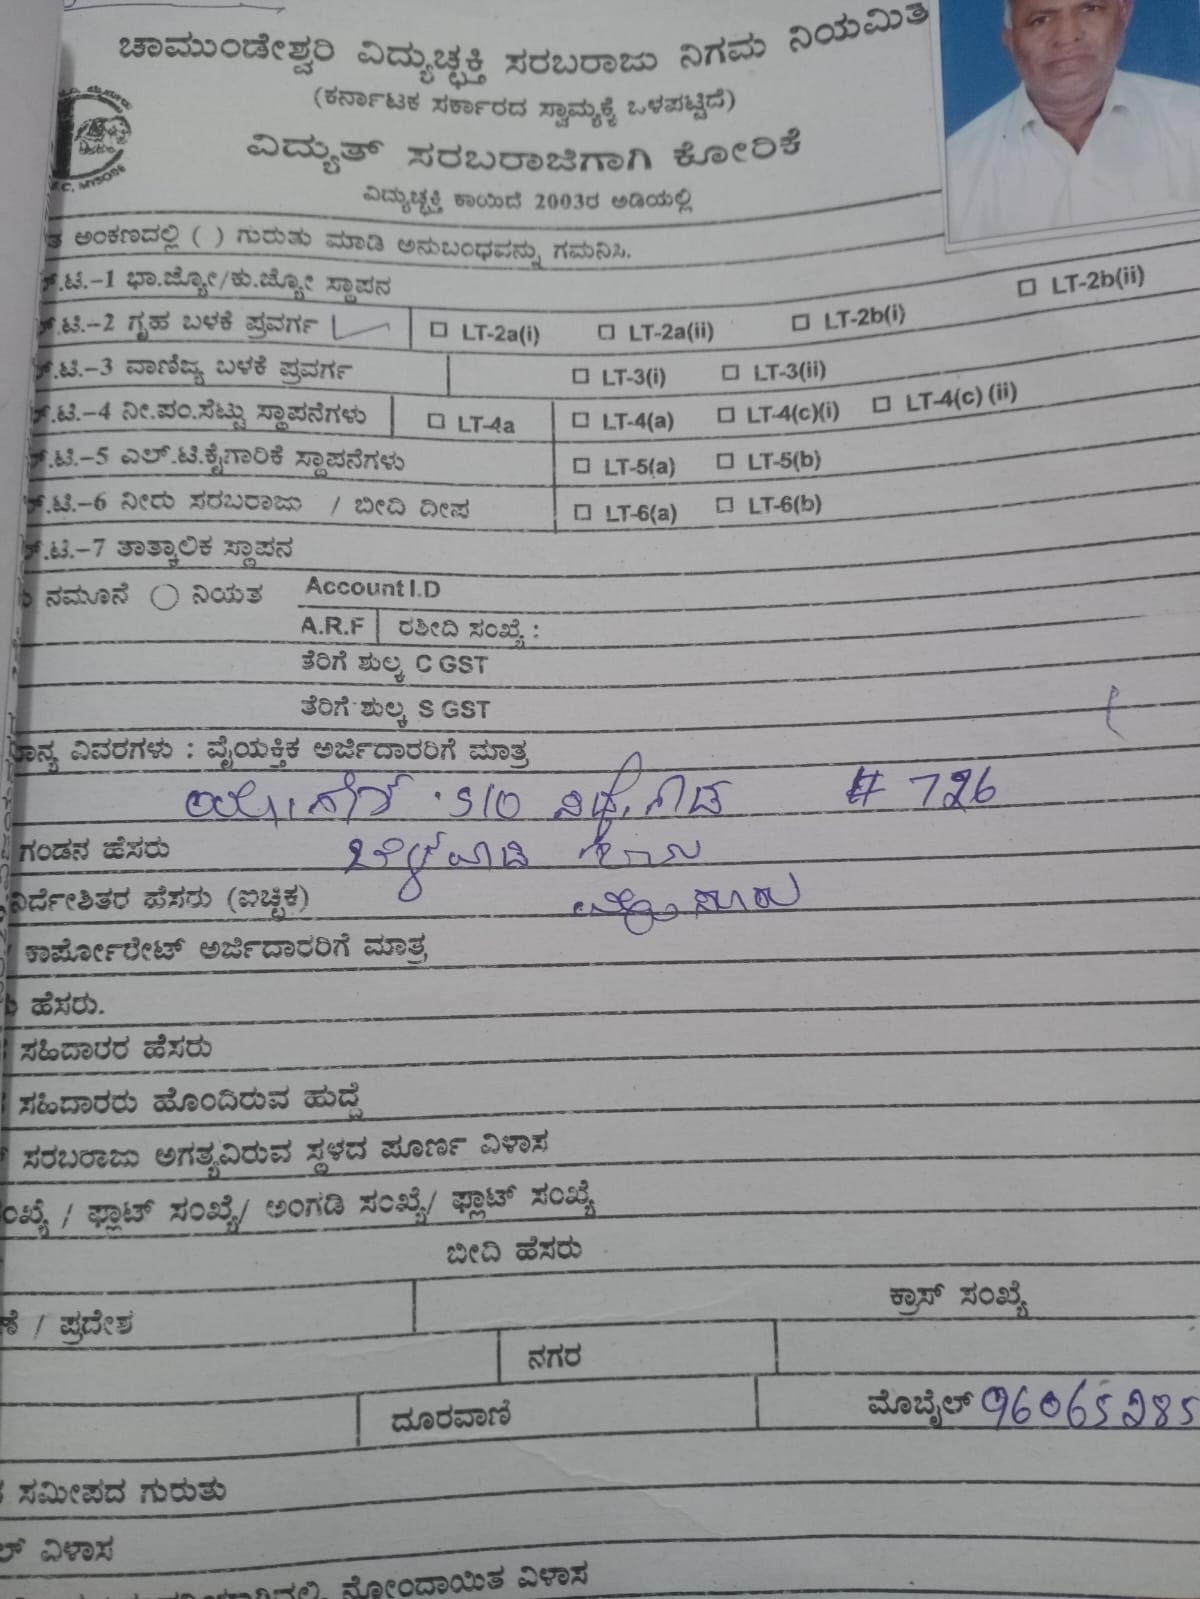 ಚಾಮುಂಡೇಶ್ವರಿ ವಿದ್ಯುಚ್ಛಕ್ತಿ ಸರಬರಾಜು ನಿಗಮ ನಿಯಮಿತ
(ಕರ್ನಾಟಕ ಸರ್ಕಾರದ ಸ್ವಾಮ್ಯಕ್ಕೆ ಒಳಪಟ್ಟಿದೆ)
ವಿದ್ಯುತ್ ಸರಬರಾಜಿಗಾಗಿ ಕೋರಿಕೆ
ವಿದ್ಯುಚ್ಛಕ್ತಿ ಕಾಯಿದೆ 2003ರ ಅಡಿಯಲ್ಲಿ
ಅಂಕಣದಲ್ಲಿ ( ) ಗುರುತು ಮಾಡಿ ಅನುಬಂಧವನ್ನು ಗಮನಿಸಿ.
.ಟಿ.-1 ಭಾ.ಜ್ಯೋ/ಕು.ಜ್ಯೋ ಸ್ಥಾಪನ
.ಟಿ.-2 ಗೃಹ ಬಳಕೆ ಪ್ರವರ್ಗ LT-2a(i) LT-2a(ii) LT-2b(i) LT-2b(ii)
.ಟಿ.-3 ವಾಣಿಜ್ಯ ಬಳಕೆ ಪ್ರವರ್ಗ LT-3(i) LT-3(ii)
.ಟಿ.-4 ನೀ.ಪಂ.ಸೆಟ್ಟು ಸ್ಥಾಪನೆಗಳು LT-4a LT-4(a) LT-4(c)(i) LT-4(c) (ii)
.ಟಿ.-5 ಎಲ್.ಟಿ.ಕೈಗಾರಿಕೆ ಸ್ಥಾಪನೆಗಳು LT-5(a) LT-5(b)
.ಟಿ.-6 ನೀರು ಸರಬರಾಜು / ಬೀದಿ ದೀಪ LT-6(a) LT-6(b)
.ಟಿ.-7 ತಾತ್ಕಾಲಿಕ ಸ್ಥಾಪನ
ನಮೂನೆ ನಿಯತ Account I.D
A.R.F ರಶೀದಿ ಸಂಖ್ಯೆ :
ತೆರಿಗೆ ಶುಲ್ಕ C GST
ತೆರಿಗೆ ಶುಲ್ಕ S GST
ವಿವರಗಳು : ವೈಯಕ್ತಿಕ ಅರ್ಜಿದಾರರಿಗೆ ಮಾತ್ರ
S/O # 726
ಗಂಡನ ಹೆಸರು ಬೆಳವಾಡಿ
ನಿರ್ದೇಶಿತರ ಹೆಸರು (ಐಚ್ಛಿಕ) ಮೈಸೂರು
ಕಾರ್ಪೋರೇಟ್ ಅರ್ಜಿದಾರರಿಗೆ ಮಾತ್ರ
ಹೆಸರು.
ಸಹಿದಾರರ ಹೆಸರು
ಸಹಿದಾರರು ಹೊಂದಿರುವ ಹುದ್ದೆ
ಸರಬರಾಜು ಅಗತ್ಯವಿರುವ ಸ್ಥಳದ ಪೂರ್ಣ ವಿಳಾಸ
/ ಫ್ಲಾಟ್ ಸಂಖ್ಯೆ/ ಅಂಗಡಿ ಸಂಖ್ಯೆ/ ಫ್ಲಾಟ್ ಸಂಖ್ಯೆ
ಬೀದಿ ಹೆಸರು
/ ಪ್ರದೇಶ ಕ್ರಾಸ್ ಸಂಖ್ಯೆ
ನಗರ
ದೂರವಾಣಿ ಮೊಬೈಲ್ 96065285
ಸಮೀಪದ ಗುರುತು
ವಿಳಾಸ
ನೋಂದಾಯಿತ ವಿಳಾಸ